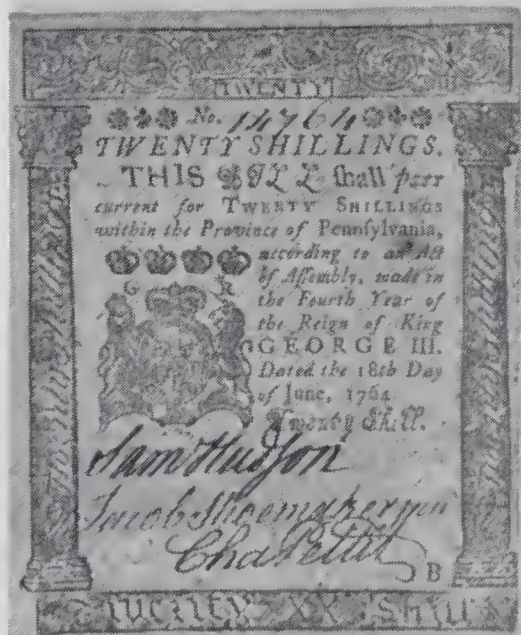 TWENTY
No. 11764
TWENTY SHILLINGS.
THIS BILL shall pass
current for TWENTY SHILLINGS
within the Province of Pennsylvania,
according to an Act
of Assembly, made in
the Fourth Year of
the Reign of King
GEORGE III.
Dated the 18th Day
of June, 1764
Twenty Shill.
G R
Sam Hudson
Jacob Shoemaker jun
Cha Pettit
B
TWENTY XX SHILL